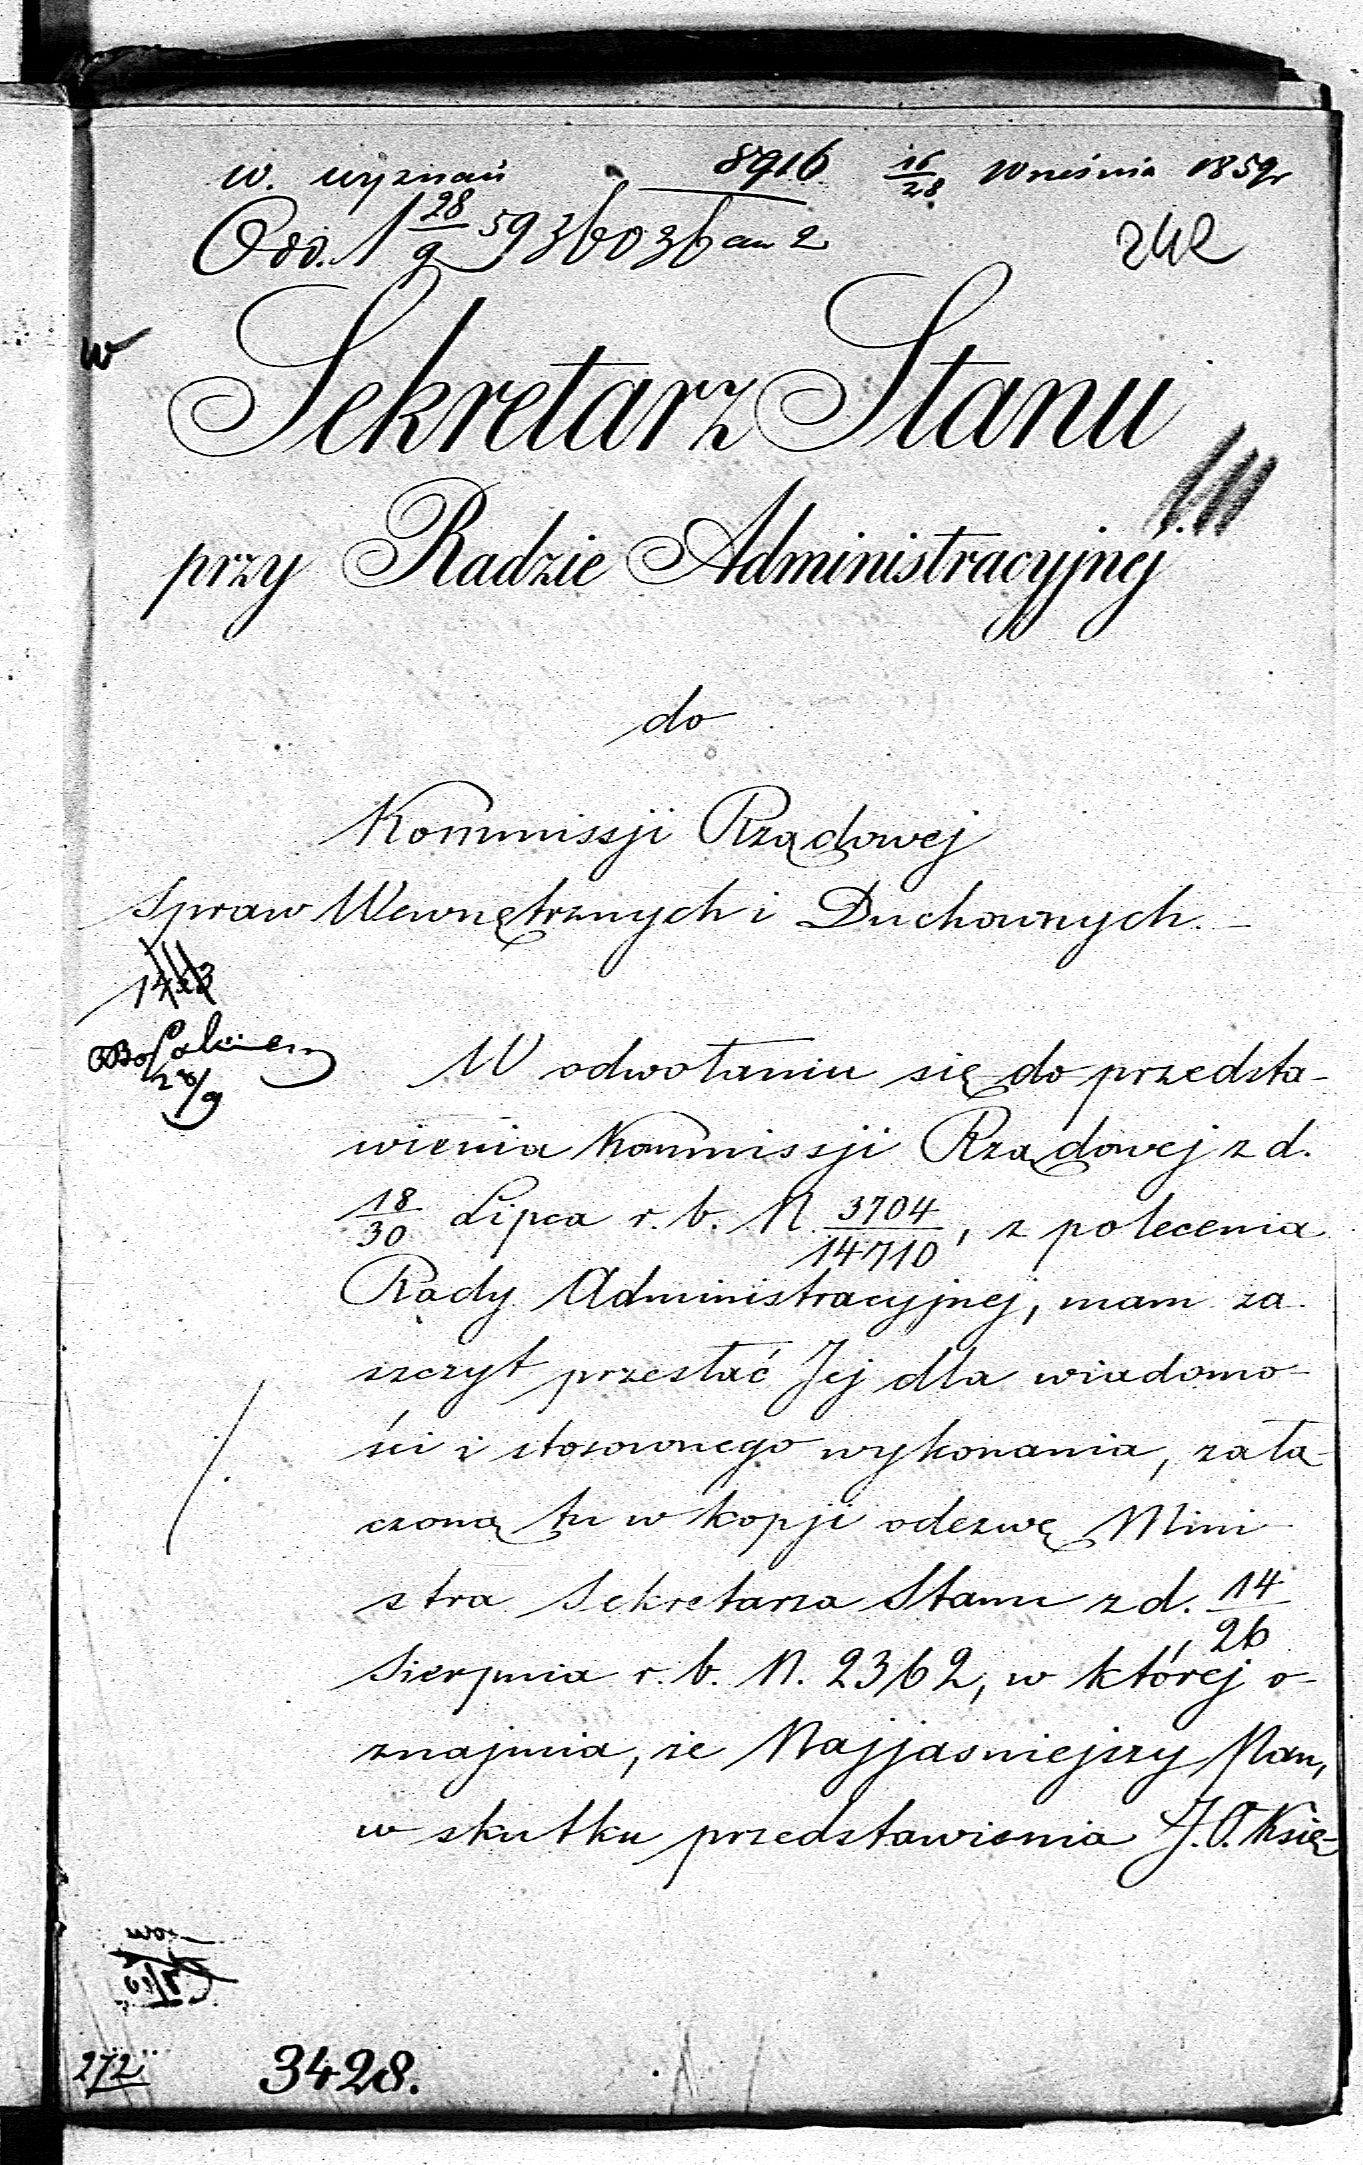 w. wyznań 8916 16/28 Września 1859 r
Odd. 1 28/9 59 36036 an 2
242
Sekretarz Stanu
przy Radzie Administracyjnej
do
Kommissji Rządowej
Spraw Wewnętrznych i Duchownych.
28/9
W odwołaniu się do przedsta-
wienia Kommissji Rządowej z d.
18/30 Lipca r. b. N. 3704/14710, z polecenia
Rady Administracyjnej, mam za-
szczyt przesłać Jej dla wiadomo-
ści i stosownego wykonania, załą-
czoną tu w kopji odezwę Mini-
stra Sekretarza Stanu z d. 14/26
Sierpnia r. b. N. 2362, w której o-
znajmia, że Najjaśniejszy Pan,
w skutku przedstawienia J. O. Księ-
272
3428.